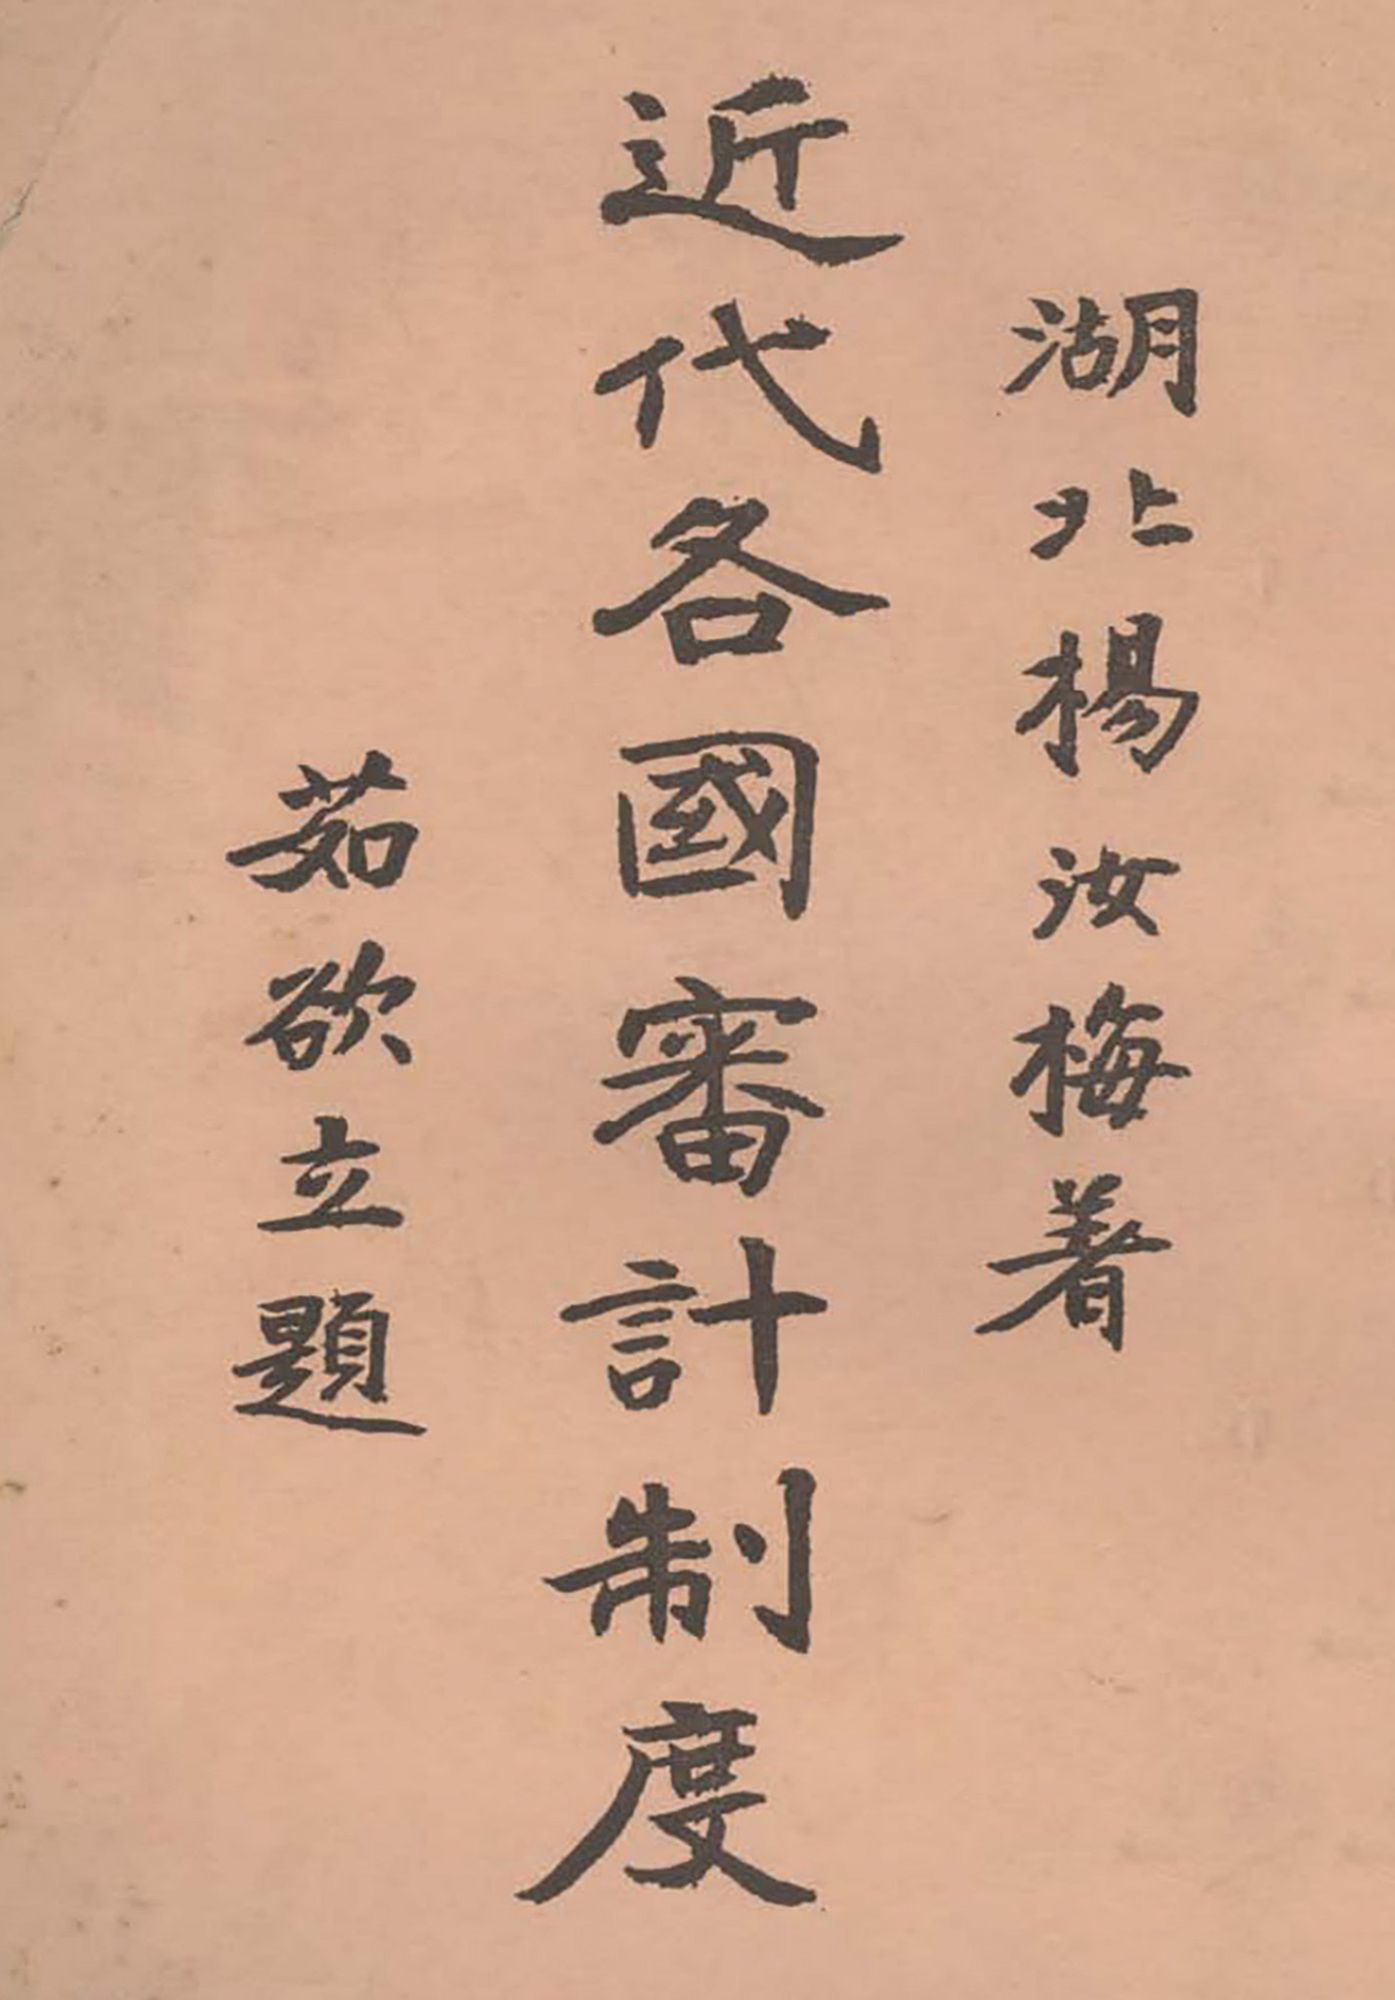 湖北楊汝梅著
近代各國審計制度
茹欲立題